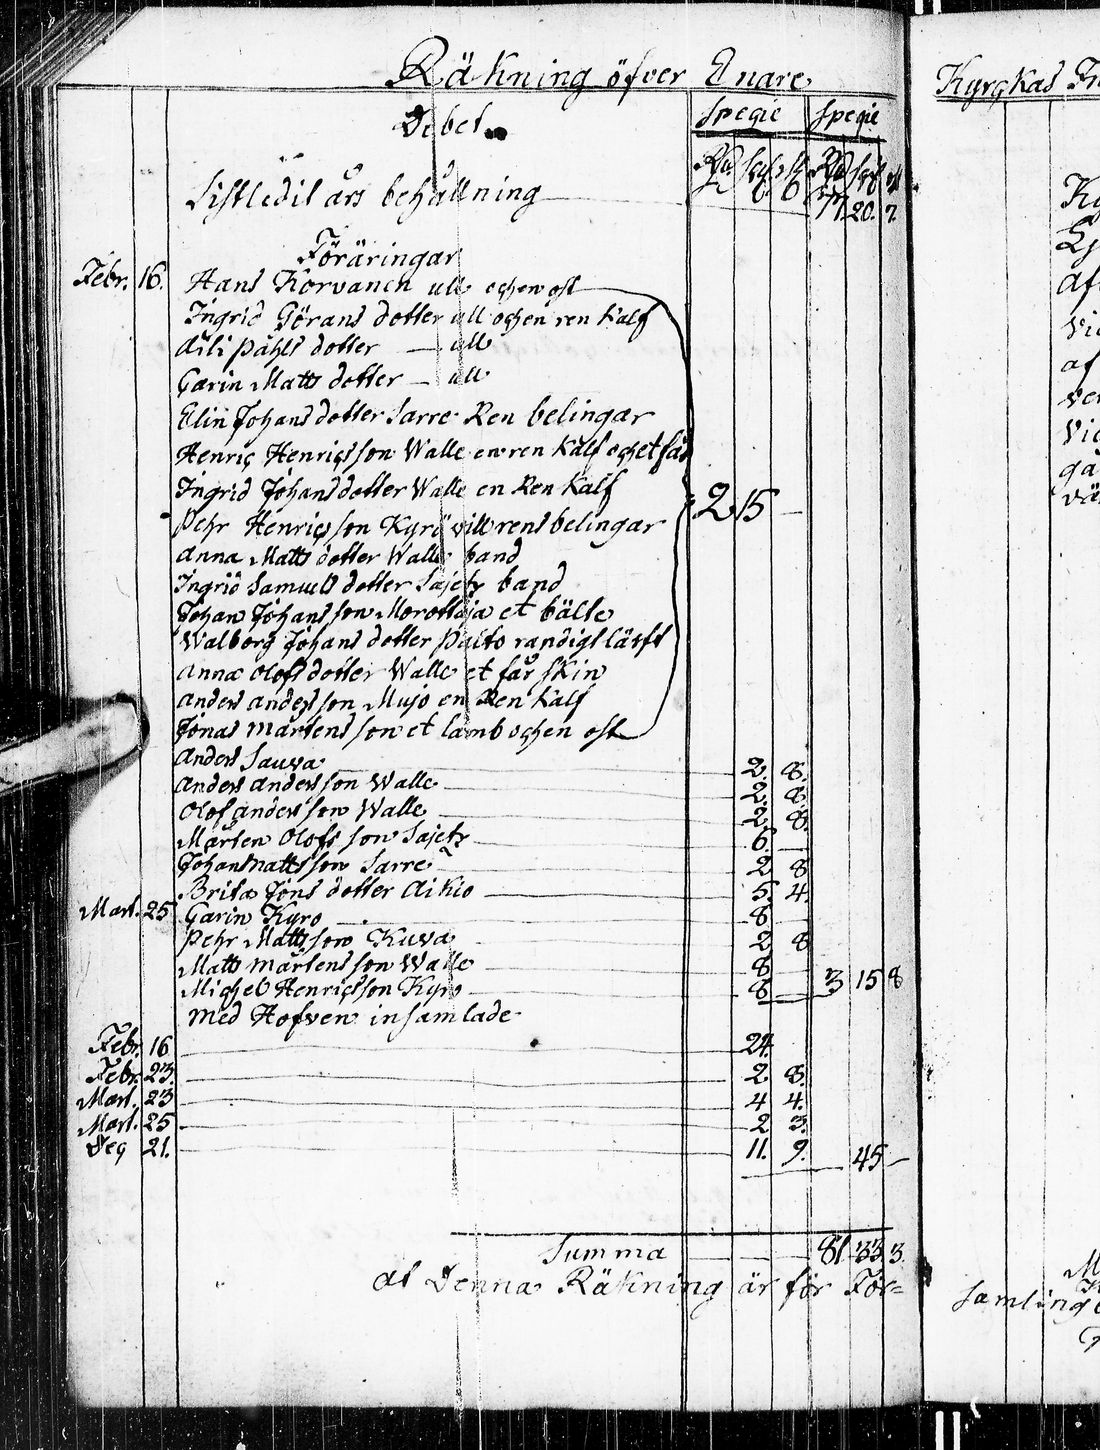 Räkning öfver Enare
Debet
Spegie Spegie
Rd sk rs Rd sk rs
Sistledit års behållning 77. 20. 7.
Föräringar
Febr. 16. Hans Korvanen ull ochen ost
Ingrid Görans dotter ull ochen ren kalf
Aili Påhls dotter — ull
Carin Matts dotter — ull
Elin Johans dotter Sarre Ren belingar
Henric Henricsson Walle en ren kalf ochet får
Ingrid Johansdotter Walle en Ren Kalf
2 15 —
Pehr Henricsson Kyrö vill rens belingar
Anna Matts dotter Walle band
Ingrid Samuels dotter Sajets band
Johan Johansson Morottaja et bälte
Walborg Johans dotter Palto randigt lärft
Anna Olofs dotter Walle et får skin
Anders Andersson Mujo en Ren kalf
Jonas Mårtensson et lamb ochen ost
Anders Sauva 2. 8.
Anders Andersson Walle 2. 8.
Olof Andersson Walle 2. 8.
Mårten Olofs son Sajets 6. —
Johan Mattsson Sarre 2 8
Brita Jöns dotter Aikio 5. 4.
Mart. 25 Carin Kyro 8. —
Pehr Mattsson Kuva 2 8
Matts Mårtensson Walle 8 —
Michel Henricsson Kyro 8 — 3 15 8
Med Hofven insamlade
Febr. 16 24.
Febr. 23. 2 8.
Mart. 23 4 4.
Mart. 25 2 3.
Dec 21. 11. 9. 45 —
Summa 81 33 3.
At Denna Räkning är för För=
Kyrckas
Ky
af
vi
af
ve
vid
gå
vä
M
samling